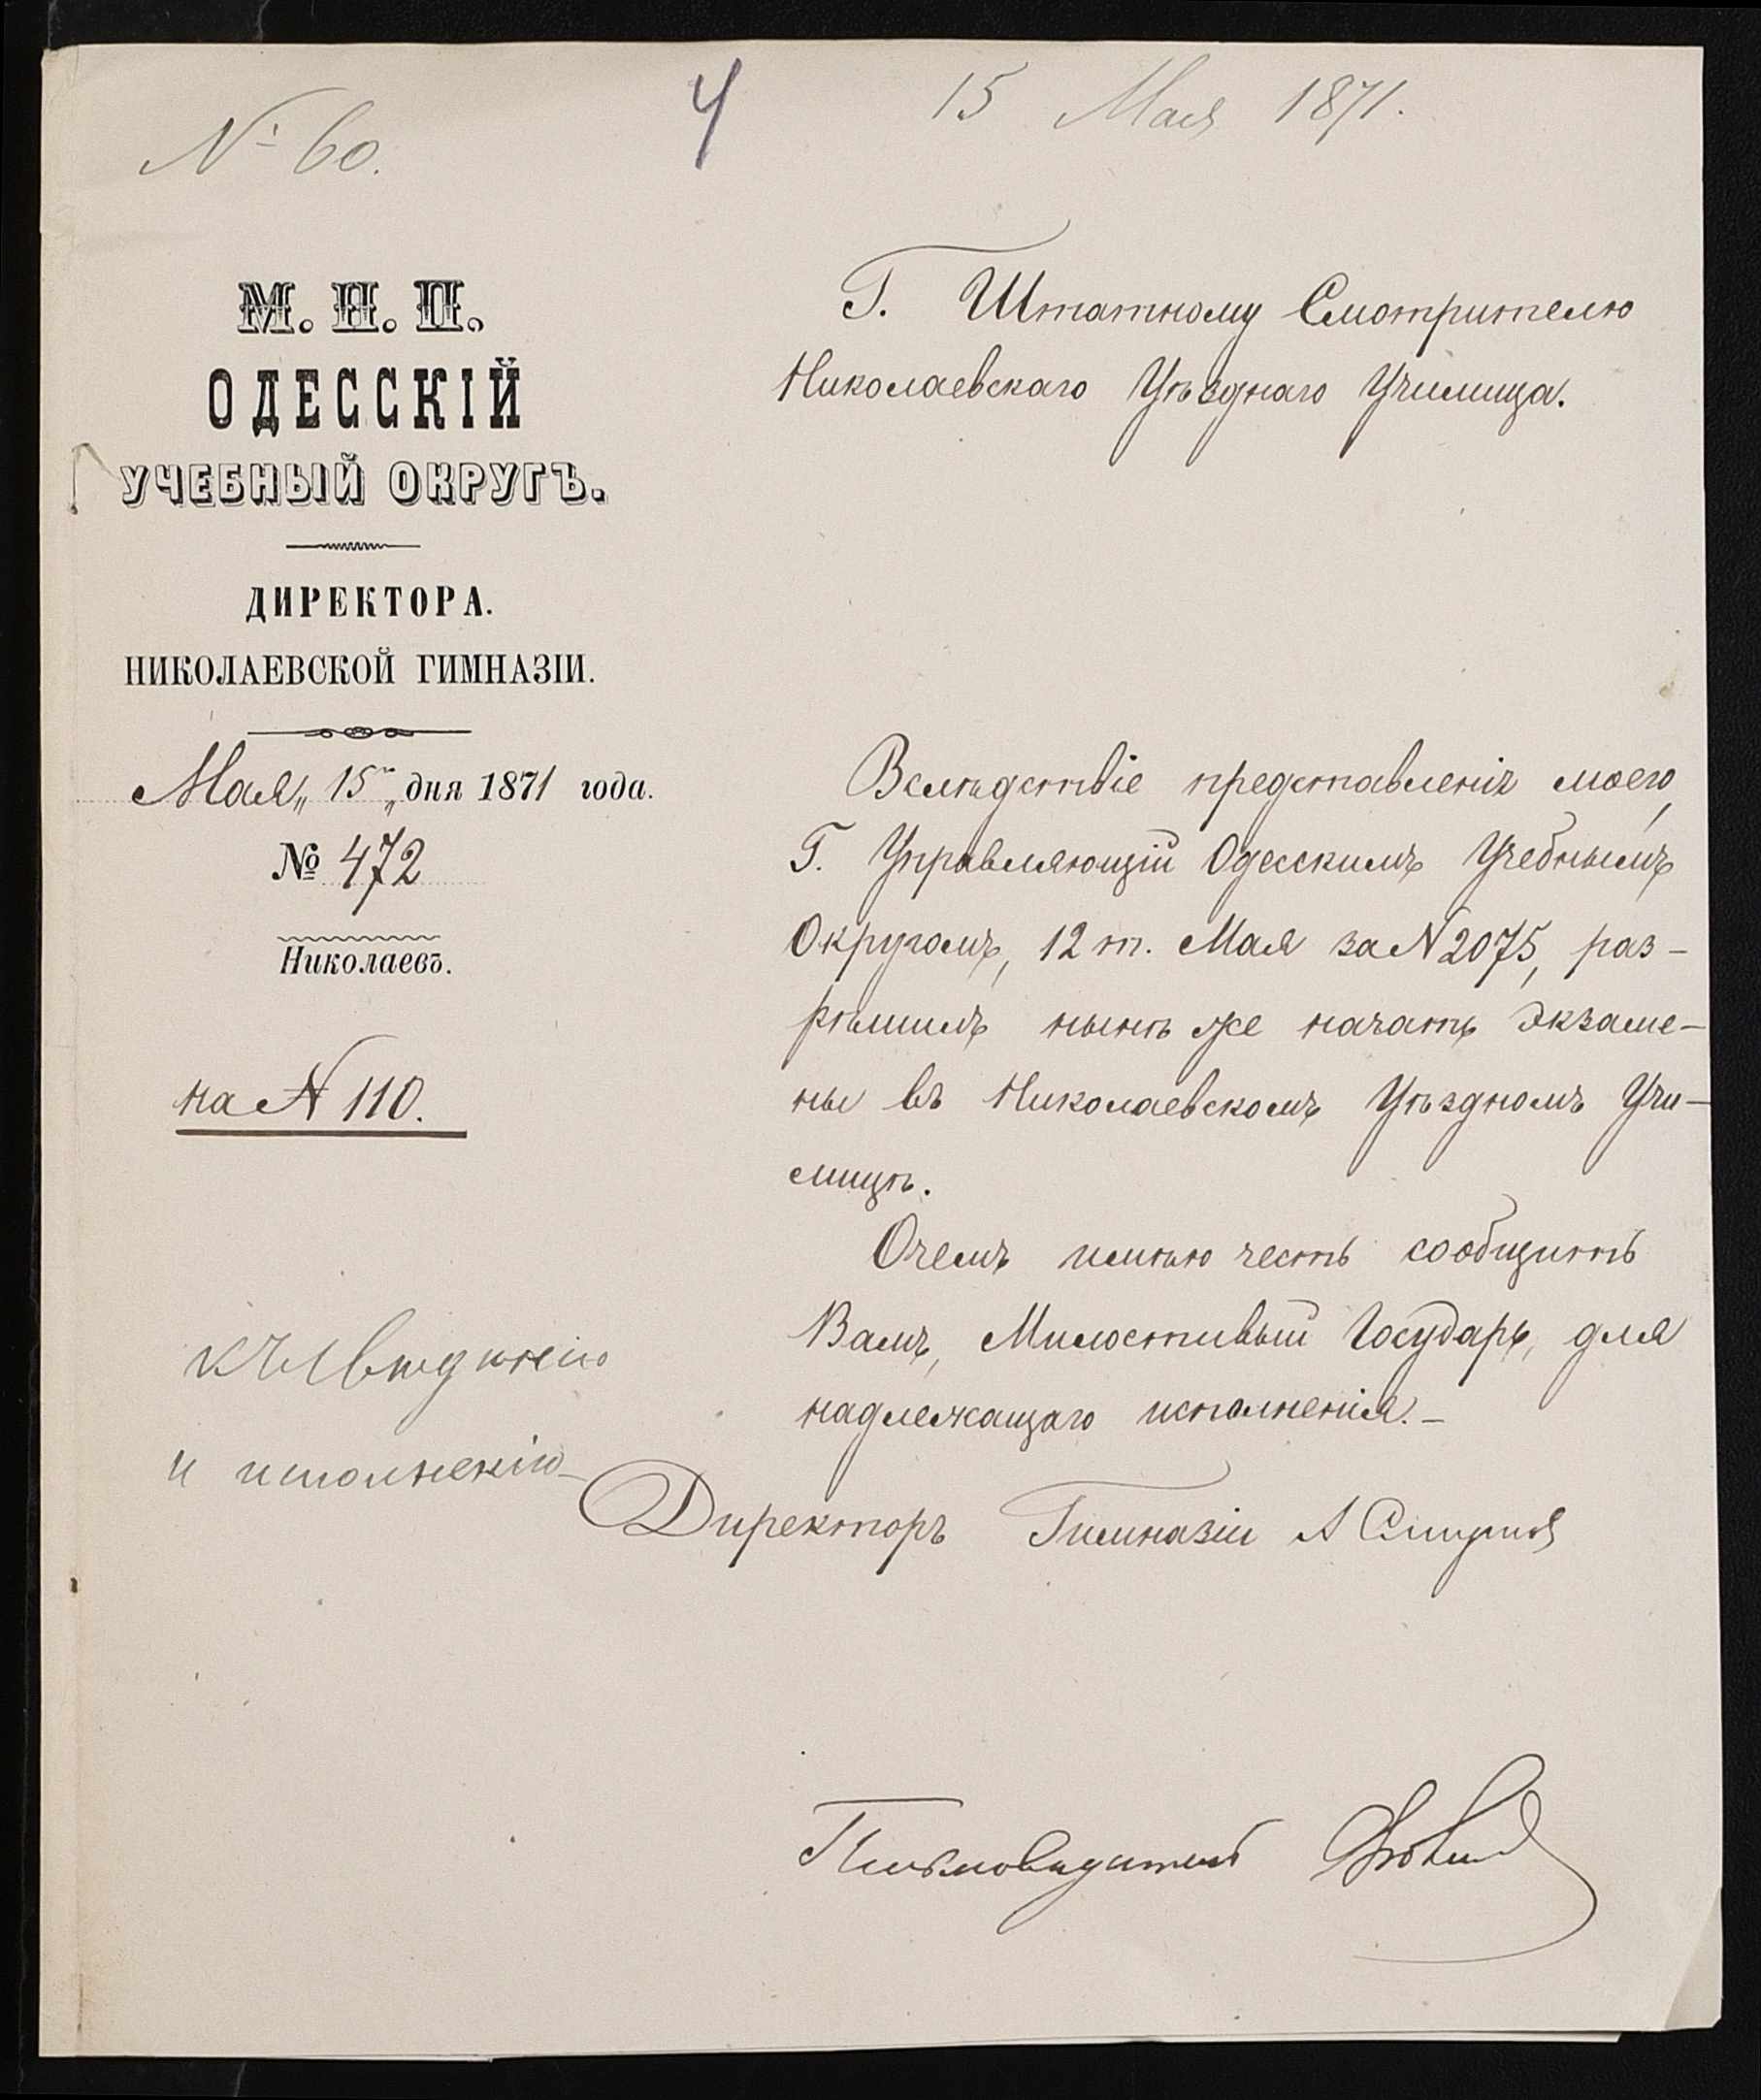 № 60.
4
15 Мая 1871.
М. Н. П.
ОДЕССКІЙ
УЧЕБНЫЙ ОКРУГЪ.
ДИРЕКТОРА.
НИКОЛАЕВСКОЙ ГИМНАЗІИ.
Мая „ 15 „ дня 1871 года.
№ 472
Николаевъ.
на № 110.
Къ свѣдѣнію
и исполненію
Г. Штатному Смотрителю
Николаевскаго Уѣзднаго Училища.
Вслѣдствіе представленія моего,
Г. Управляющій Одесскимъ Учебнымъ
Округомъ, 12 т. Мая за № 2075, раз-
рѣшилъ нынѣ же начать экзаме-
ны въ Николаевскомъ Уѣздномъ Учи-
лищѣ.
Очемъ имѣю честь сообщить
Вамъ, Милостивый Государь, для
надлежащаго исполненія.-
Директоръ Гимназіи А
Письмоводитель